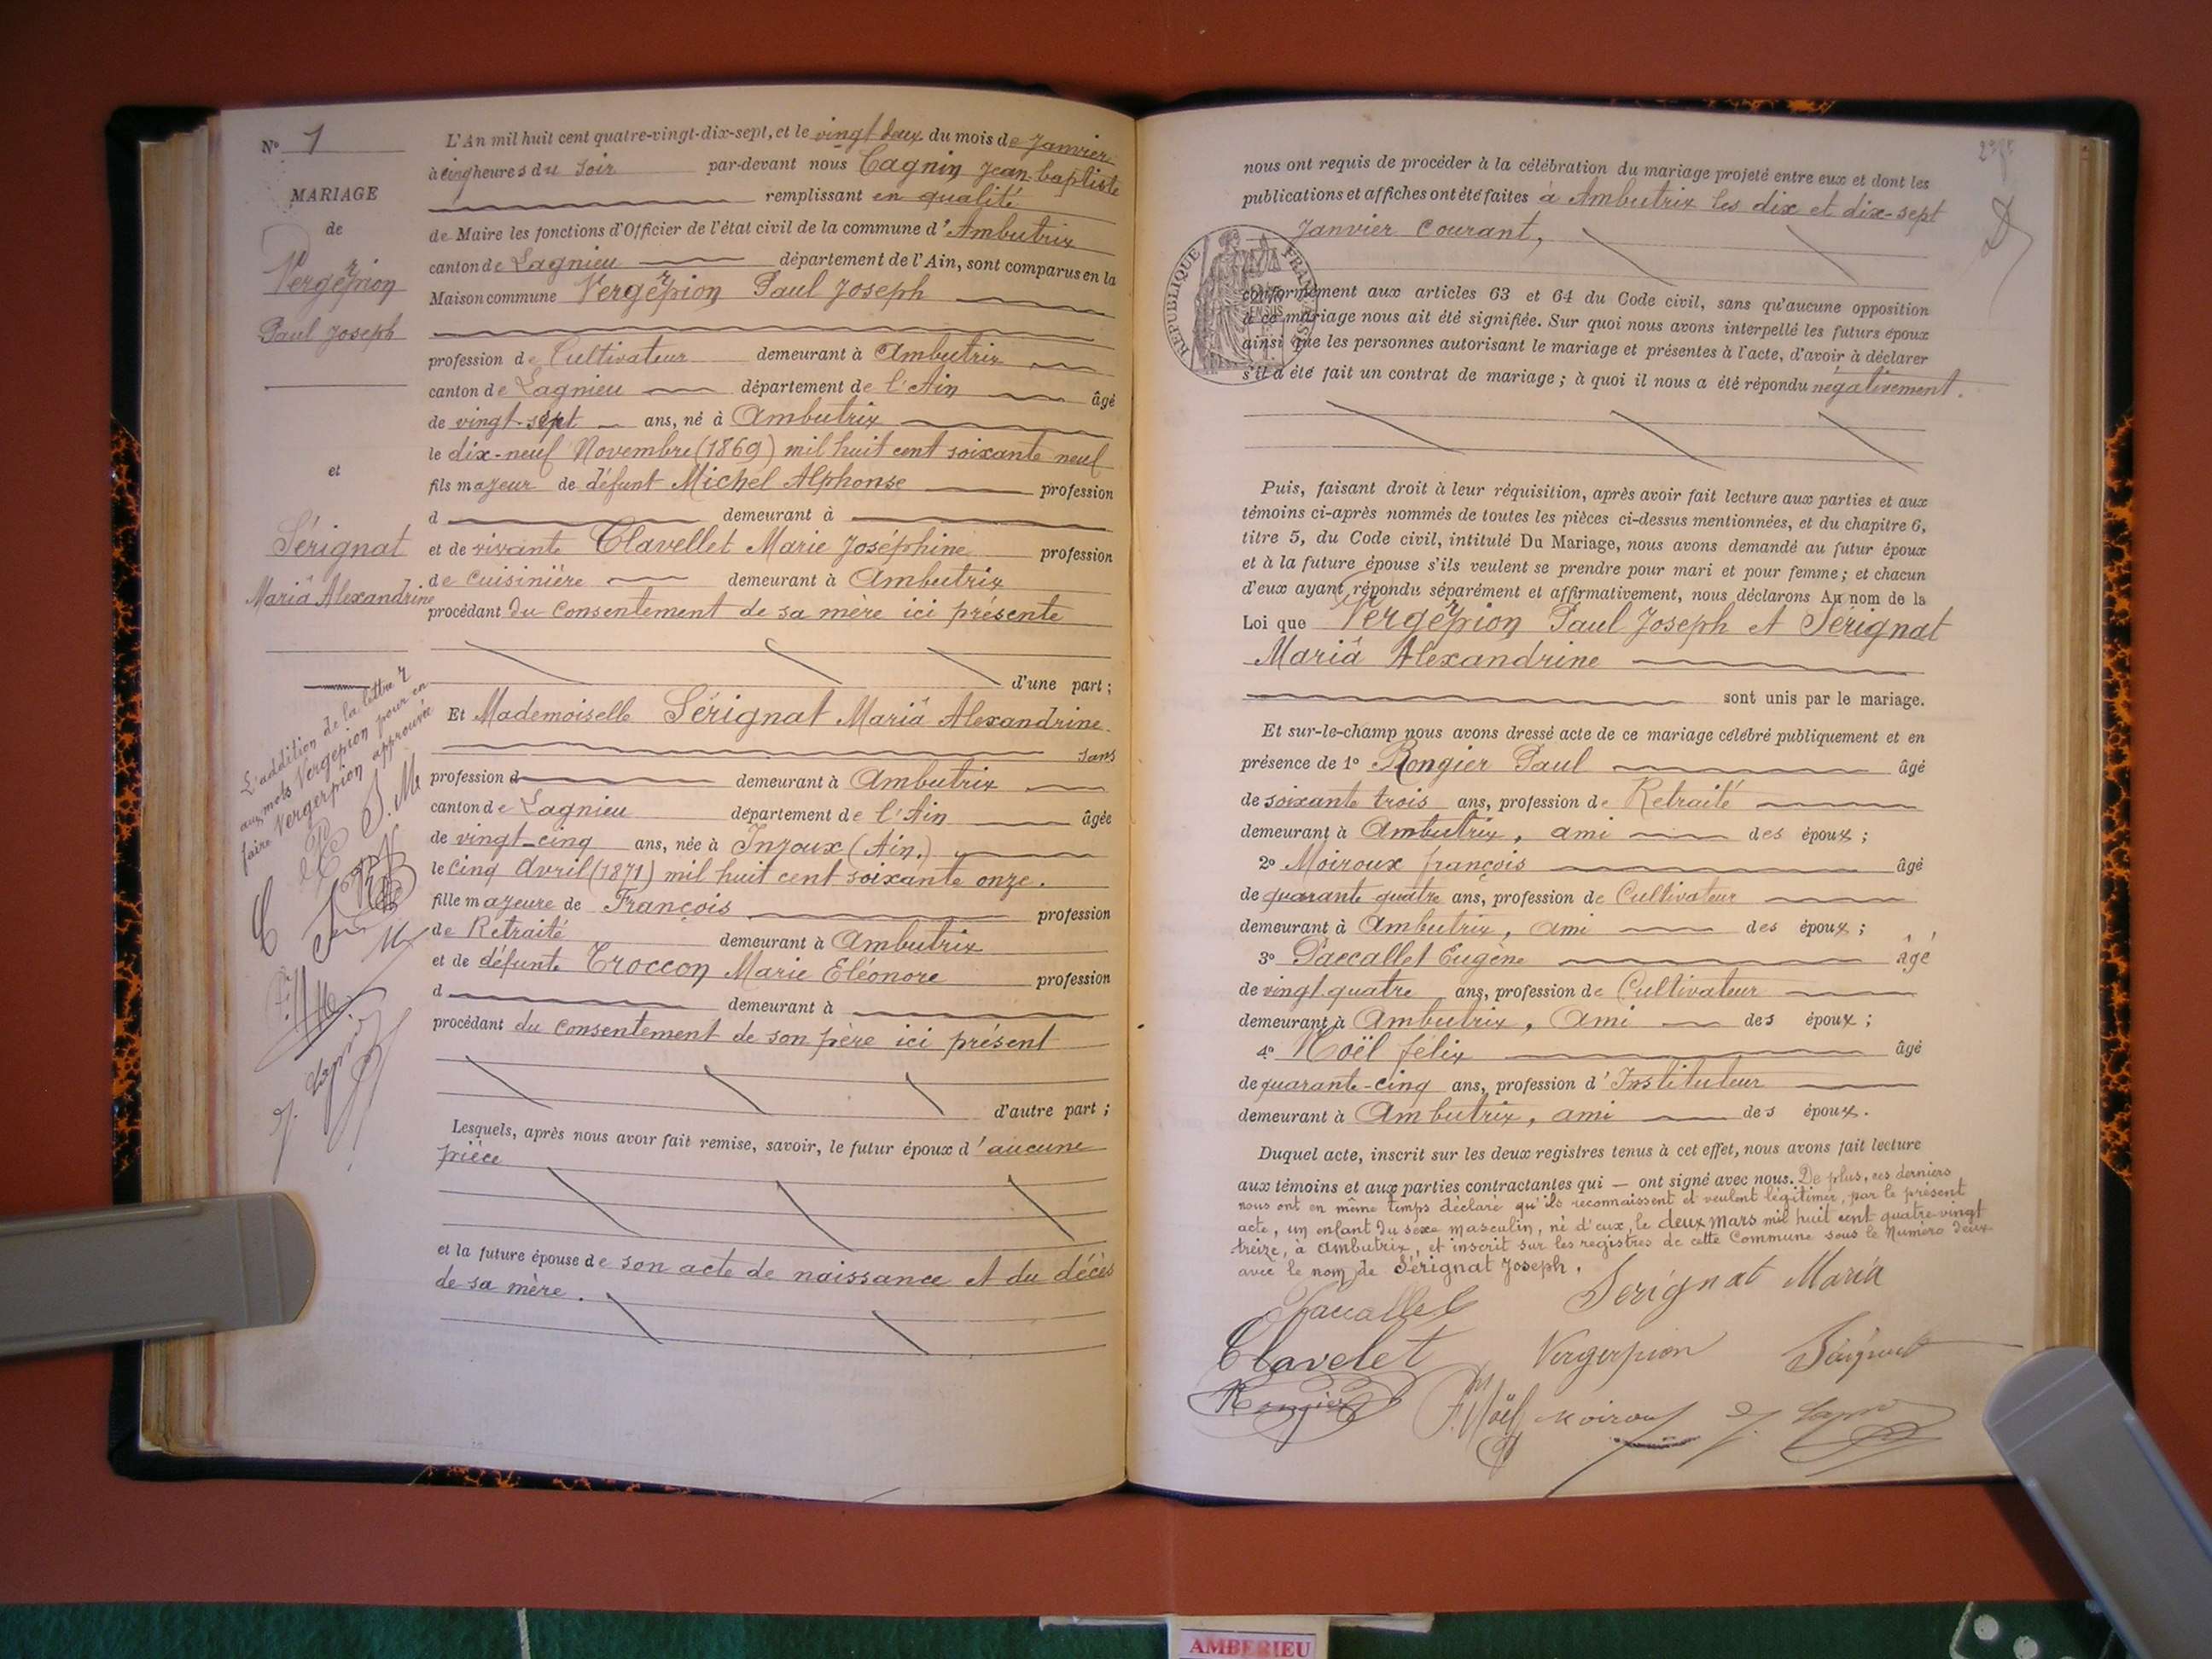 N° 1
MARIAGE
de
Vergerpion
Paul Joseph
et
Sérignat
Mariâ Alexandrine
L'addition de la lettre r
aux mots Vergepion pour en
faire Vergerpion approuvée
S. M.
L'An mil huit cent quatre-vingt-dix-sept, et le vingt deux du mois de Janvier
à cinq heures du soir par-devant nous Cagnin Jean-baptiste
remplissant en qualité
de Maire les fonctions d'Officier de l'état civil de la commune d'Ambutrix
canton de Lagnieu département de l'Ain, sont comparus en la
Maison commune Vergerpion Paul Joseph
profession de Cultivateur demeurant à Ambutrix
canton de Lagnieu département de l'Ain âgé
de vingt-sept ans, né à Ambutrix
le dix-neuf Novembre (1869) mil huit cent soixante neuf
fils majeur de défunt Michel Alphonse profession
d demeurant à
et de vivante Clavellet Marie Joséphine profession
de cuisinière demeurant à Ambutrix
procédant du consentement de sa mère ici présente
d'une part ;
Et Mademoiselle Sérignat Mariâ Alexandrine
sans
profession d demeurant à Ambutrix
canton de Lagnieu département de l'Ain âgée
de vingt-cinq ans, née à Injoux (Ain.)
le cinq Avril (1871) mil huit cent soixante onze.
fille majeure de François profession
de Retraité demeurant à Ambutrix
et de défunte Troccon Marie Eléonore profession
d demeurant à
procédant du consentement de son père ici présent
d'autre part ;
Lesquels, après nous avoir fait remise, savoir, le futur époux d'aucune
pièce
et la future épouse de son acte de naissance et du décès
de sa mère.
nous ont requis de procéder à la célébration du mariage projeté entre eux et dont les
publications et affiches ont été faites à Ambutrix les dix et dix-sept
Janvier courant,
RÉPUBLIQUE FRANÇAISE
conformément aux articles 63 et 64 du Code civil, sans qu'aucune opposition
à ce mariage nous ait été signifiée. Sur quoi nous avons interpellé les futurs époux
ainsi que les personnes autorisant le mariage et présentes à l'acte, d'avoir à déclarer
s'il a été fait un contrat de mariage ; à quoi il nous a été répondu négativement.
Puis, faisant droit à leur réquisition, après avoir fait lecture aux parties et aux
témoins ci-après nommés de toutes les pièces ci-dessus mentionnées, et du chapitre 6,
titre 5, du Code civil, intitulé Du Mariage, nous avons demandé au futur époux
et à la future épouse s'ils veulent se prendre pour mari et pour femme ; et chacun
d'eux ayant répondu séparément et affirmativement, nous déclarons Au nom de la
Loi que Vergerpion Paul Joseph et Sérignat
Mariâ Alexandrine
sont unis par le mariage.
Et sur-le-champ nous avons dressé acte de ce mariage célébré publiquement et en
présence de 1° Rongier Paul âgé
de soixante trois ans, profession de Retraité
demeurant à Ambutrix, ami des époux ;
2° Moiroux françois âgé
de quarante quatre ans, profession de Cultivateur
demeurant à Ambutrix, ami des époux ;
3° Paccallet Eugène âgé
de vingt quatre ans, profession de Cultivateur
demeurant à Ambutrix, Ami des époux ;
4° Noël félix âgé
de quarante-cinq ans, profession d'Instituteur
demeurant à Ambutrix, ami des époux.
Duquel acte, inscrit sur les deux registres tenus à cet effet, nous avons fait lecture
aux témoins et aux parties contractantes qui — ont signé avec nous. De plus, ces derniers
nous ont en même temps déclaré qu'ils reconnaissent et veulent légitimer, par le présent
acte, un enfant du sexe masculin, né d'eux, le deux Mars mil huit cent quatre-vingt
treize, à Ambutrix, et inscrit sur les registres de cette Commune sous le Numéro deux
avec le nom de Sérignat Joseph.
Paccallet Serignat Maria
Clavelet Vergerpion Sérignat
Rongier F. Noël Moiroux J. Cagnin
AMBERIEU